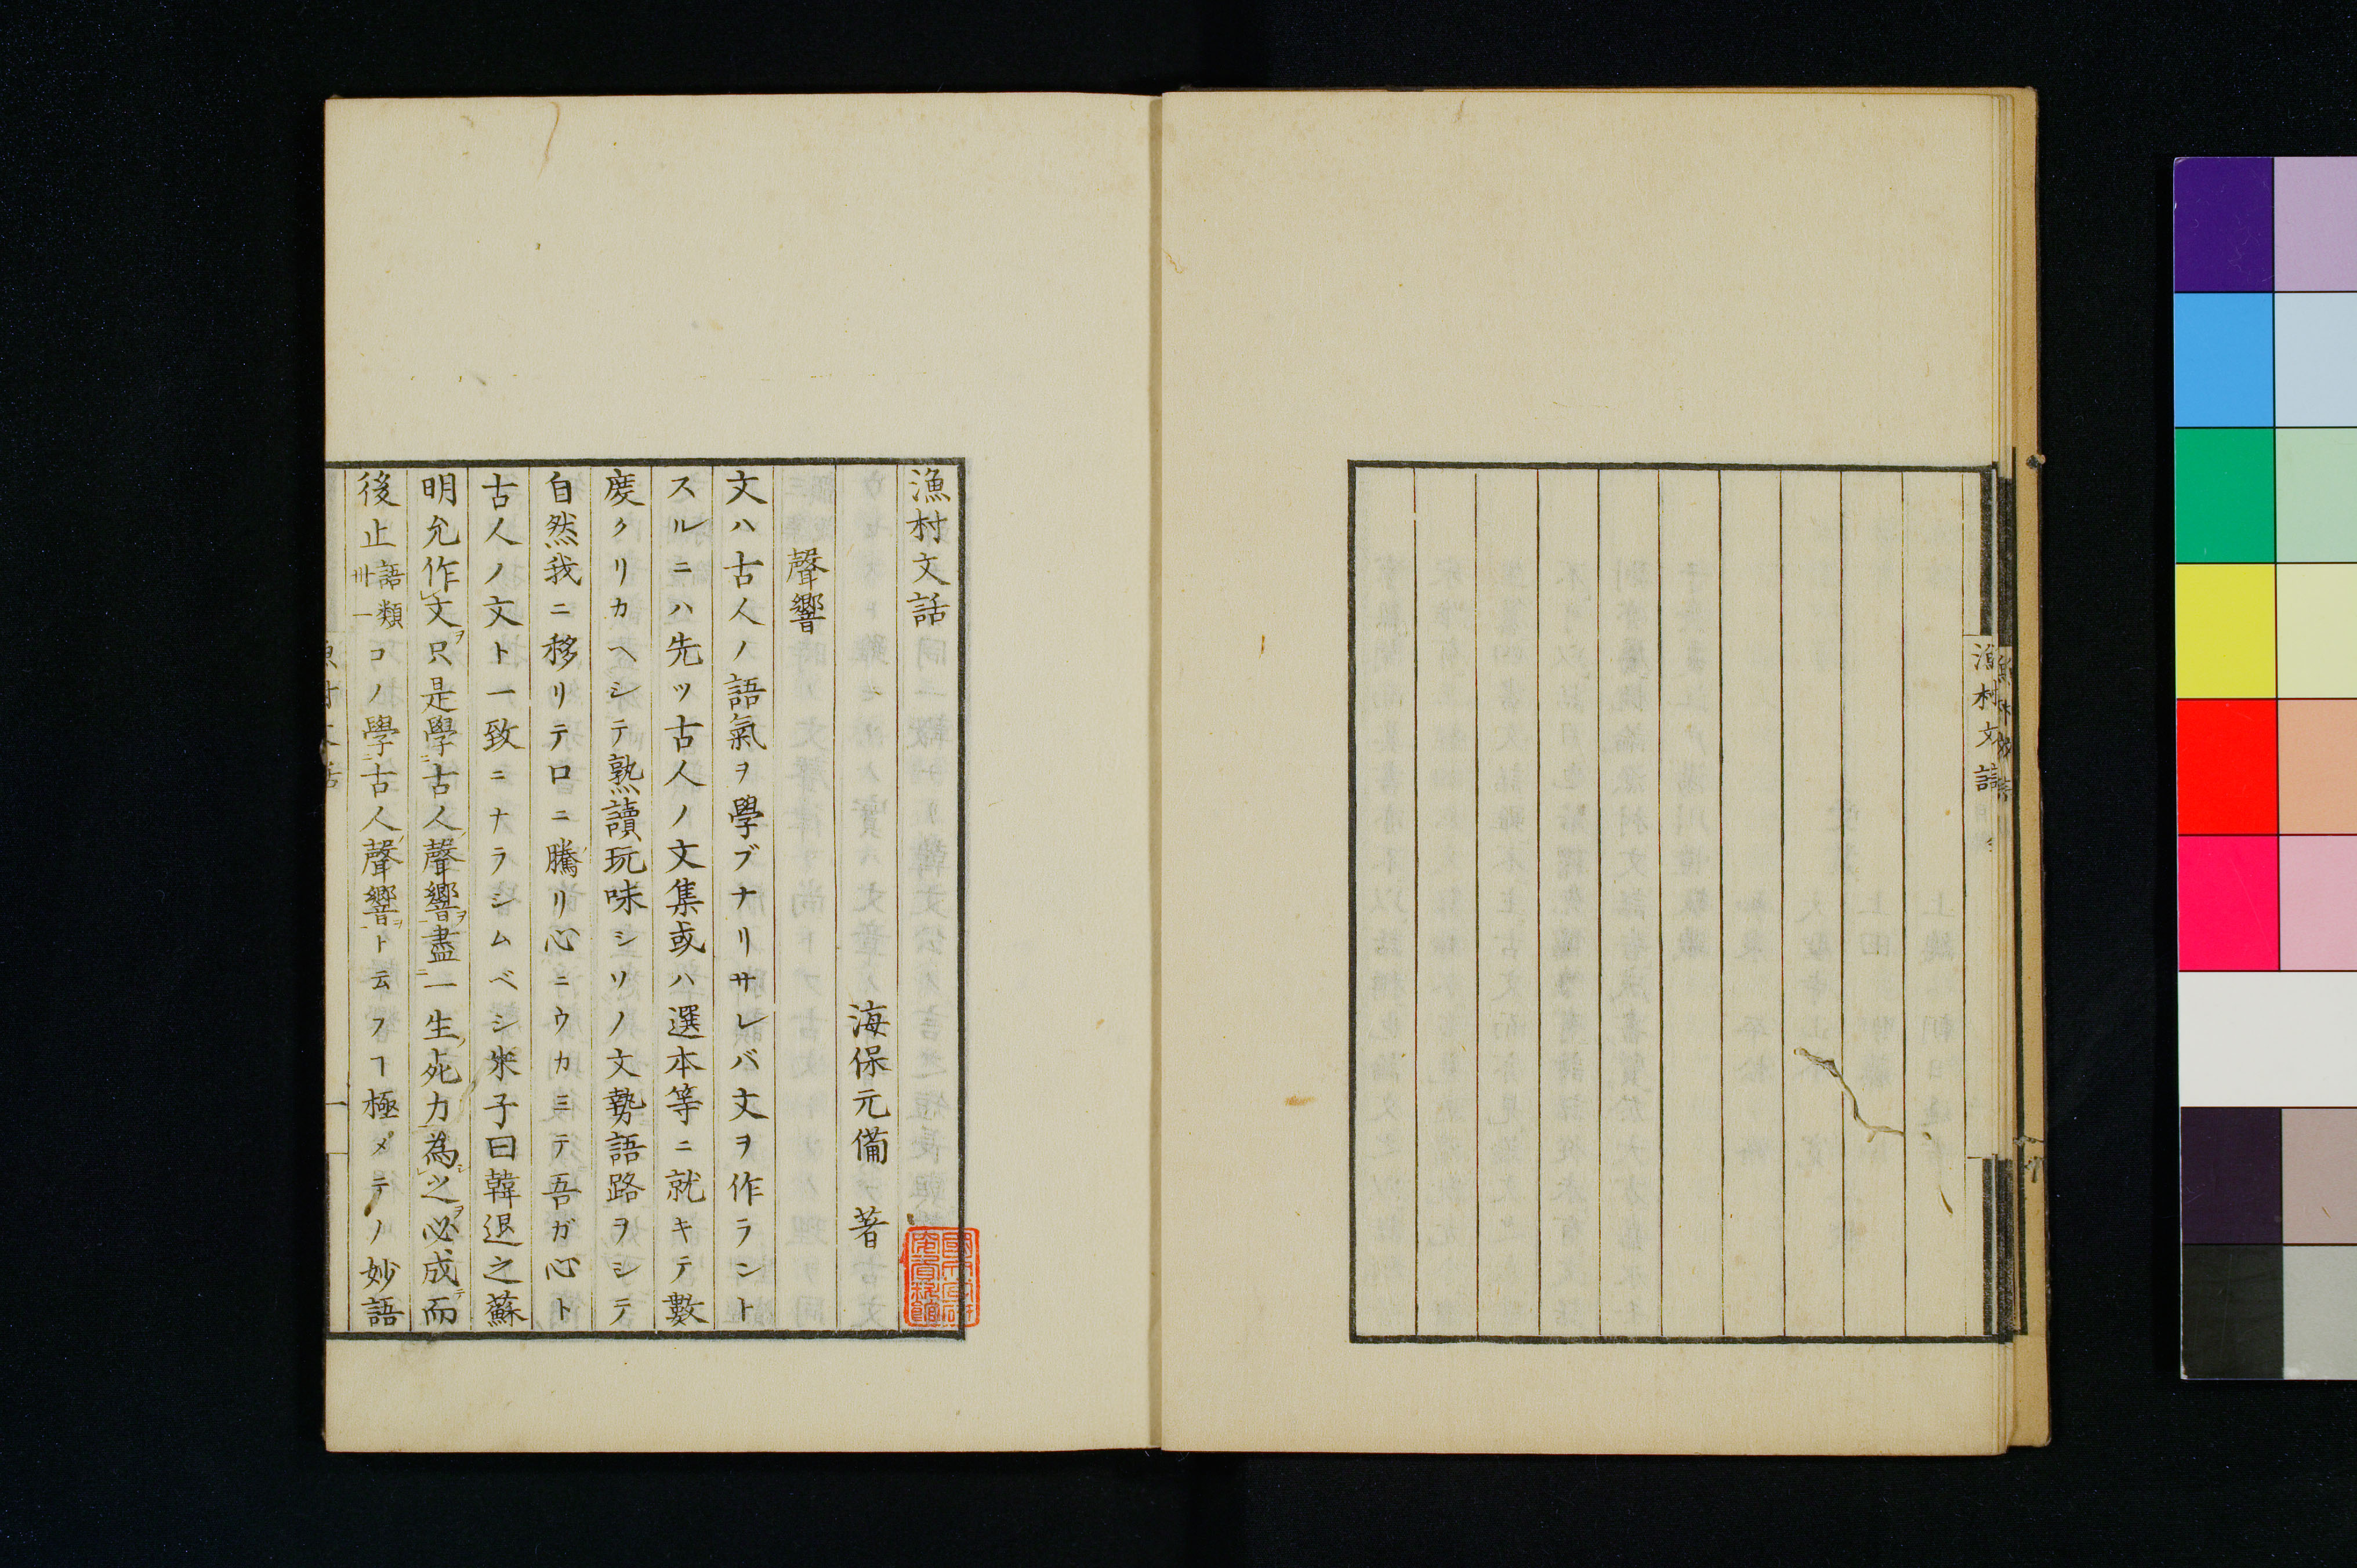 漁村文話
漁村文話
海保元備 著
聲響
文ハ古人ノ語氣ヲ學ブナリサレバ文ヲ作ラント
スルニハ先ツ古人ノ文集或ハ選本等ニ就キテ數
度クリカヘシテ熟讀玩味シソノ文勢語路ヲシテ
自然我ニ移リテ口ニ騰リ心ニウカミテ吾ガ心ト
古人ノ文ト一致ニナラシムベシ朱子曰韓退之蘇
明允作文只是學古人聲響盡一生死力為之必成而
後止語類卅一コノ學古人聲響ト云フヿ極メテノ妙語
一